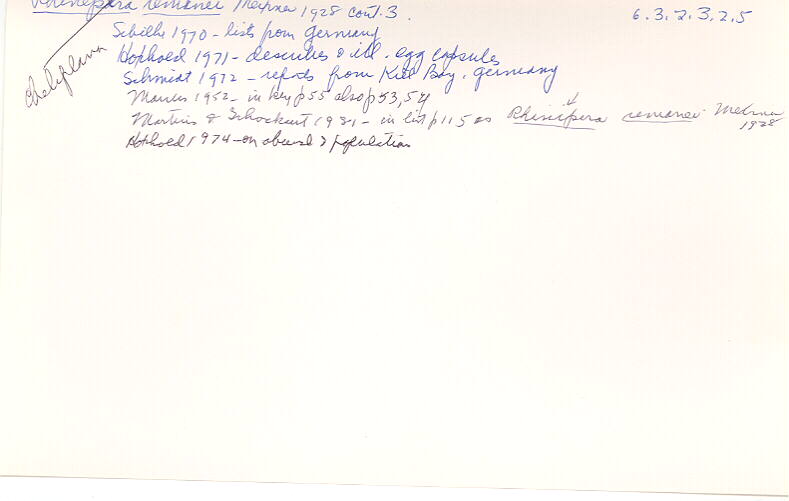 Rhinepera remanei Meixner 1928 cont. 3. 6.3.2.3.2.5
Cheliplana
Sibille 1970 - lists from Germany
Hoxhold 1971 - describes & ill. egg capsules
Schmidt 1972 - reports from Kiel Bay, Germany
Marcus 1952 - in key p 55 also p 53, 54
Martens & Schockaert 1981 - in list p 115 as Rhinipera remanei Meixner 1928
Hoxhold 1974 - on abund & population